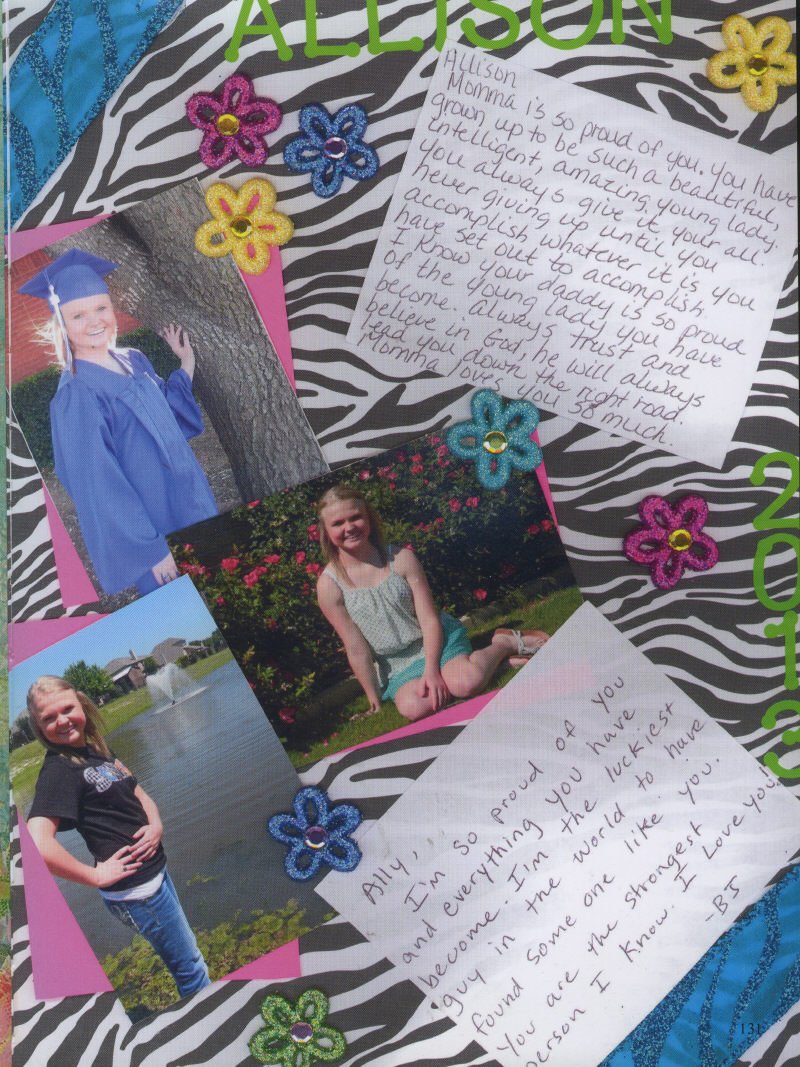 ALLISON
Allison
Momma is so proud of you. You have
grown up to be such a beautiful,
intelligent, amazing young lady.
You always give it your all.
never giving up until you
accomplish whatever it is you
have set out to accomplish.
I know your daddy is so proud
of the young lady you have
become. Always trust and
believe in God, he will always
lead you down the right road.
Momma loves you so much.
2013
Ally,
I'm so proud of you
and everything you have
become. I'm the luckiest
guy in the world to have
found some one like you.
You are the strongest
person I know. I Love you!
-BJ
131